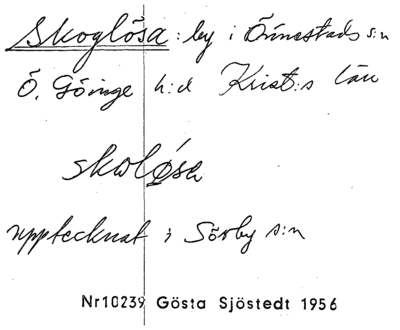 Skoglösa: by i Önnestads s:n
Ö. Göinge h:d Krist:s län
skolǿsa
upptecknat i Sörby s:n
Nr10239 Gösta Sjöstedt 1956